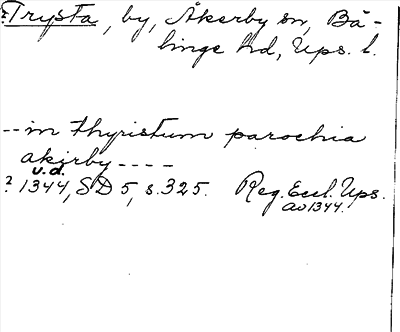 Trysta, by, Åkerby sn, Bä-
linge hd, Ups. l.
-- in thyristum parochia
akirby ----
u.d.
? 1344, SD 5, s. 325. Reg. Eccl. Ups.
av 1344.